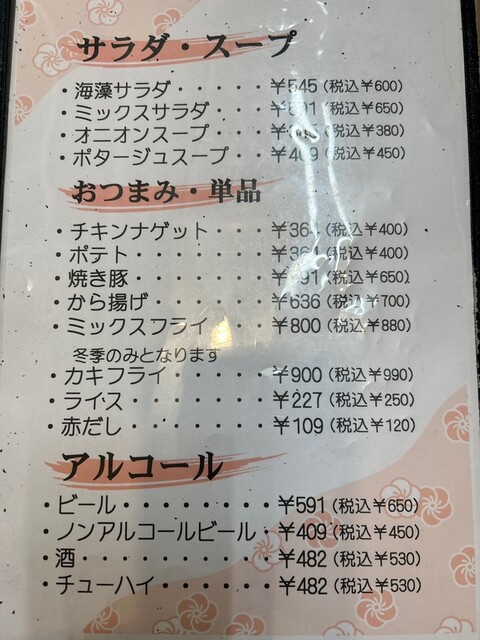 サラダ・スープ
・海藻サラダ・・・・・¥545(税込¥600)
・ミックスサラダ・・・¥591(税込¥650)
・オニオンスープ・・・(税込¥380)
・ポタージュスープ・・¥409(税込¥450)
おつまみ・単品
・チキンナゲット・・・¥364(税込¥400)
・ポテト・・・・・・・¥364(税込¥400)
・焼き豚・・・・・・・¥591(税込¥650)
・から揚げ・・・・・・¥636(税込¥700)
・ミックスフライ・・・¥800(税込¥880)
冬季のみとなります
・カキフライ・・・・・¥900(税込¥990)
・ライス・・・・・・・¥227(税込¥250)
・赤だし・・・・・・・¥109(税込¥120)
アルコール
・ビール・・・・・・・・¥591(税込¥650)
・ノンアルコールビール・¥409(税込¥450)
・酒・・・・・・・・・・¥482(税込¥530)
・チューハイ・・・・・・¥482(税込¥530)